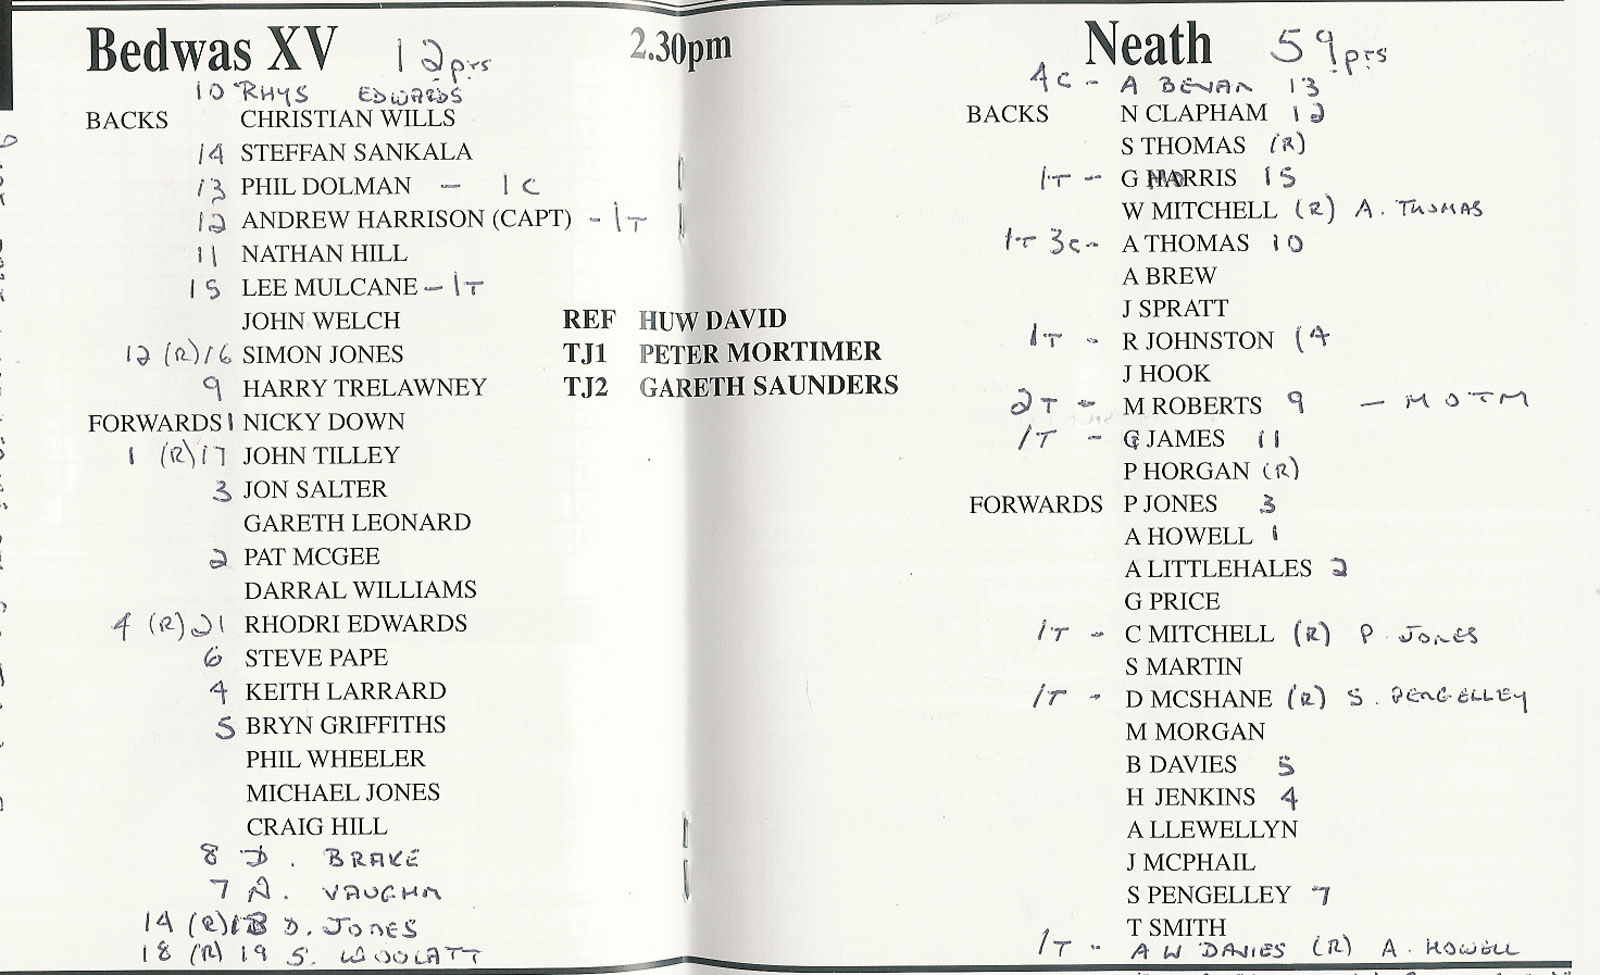 Bedwas XV 12 prs
10 RHYS EDWARDS
BACKS CHRISTIAN WILLS
14 STEFFAN SANKALA
13 PHIL DOLMAN - 1C
12 ANDREW HARRISON (CAPT) - 1T
11 NATHAN HILL
15 LEE MULCANE - 1T
JOHN WELCH
12 (R) 16 SIMON JONES
9 HARRY TRELAWNEY
FORWARDS 1 NICKY DOWN
1 (R) 17 JOHN TILLEY
3 JON SALTER
GARETH LEONARD
2 PAT MCGEE
DARRAL WILLIAMS
4 (R) 21 RHODRI EDWARDS
6 STEVE PAPE
4 KEITH LARRARD
5 BRYN GRIFFITHS
PHIL WHEELER
MICHAEL JONES
CRAIG HILL
8 D. BRAKE
7 A. VAUGHN
14 (R) 18 D. JONES
18 (R) 19 S. WOOLATT
2.30pm
REF HUW DAVID
TJ1 PETER MORTIMER
TJ2 GARETH SAUNDERS
Neath 59 prs
4C - A BEVAN 13
BACKS N CLAPHAM 12
S THOMAS (R)
1T - G HARRIS 15
W MITCHELL (R) A. THOMAS
1T 3C - A THOMAS 10
A BREW
J SPRATT
1T - R JOHNSTON 14
J HOOK
2T - M ROBERTS 9 - MOTM
1T - G JAMES 11
P HORGAN (R)
FORWARDS P JONES 3
A HOWELL 1
A LITTLEHALES 2
G PRICE
1T - C MITCHELL (R) P JONES
S MARTIN
1T - D MCSHANE (R) S. PENGELLEY
M MORGAN
B DAVIES 5
H JENKINS 4
A LLEWELLYN
J MCPHAIL
S PENGELLEY 7
T SMITH
1T - A W DAVIES (R) A. HOWELL